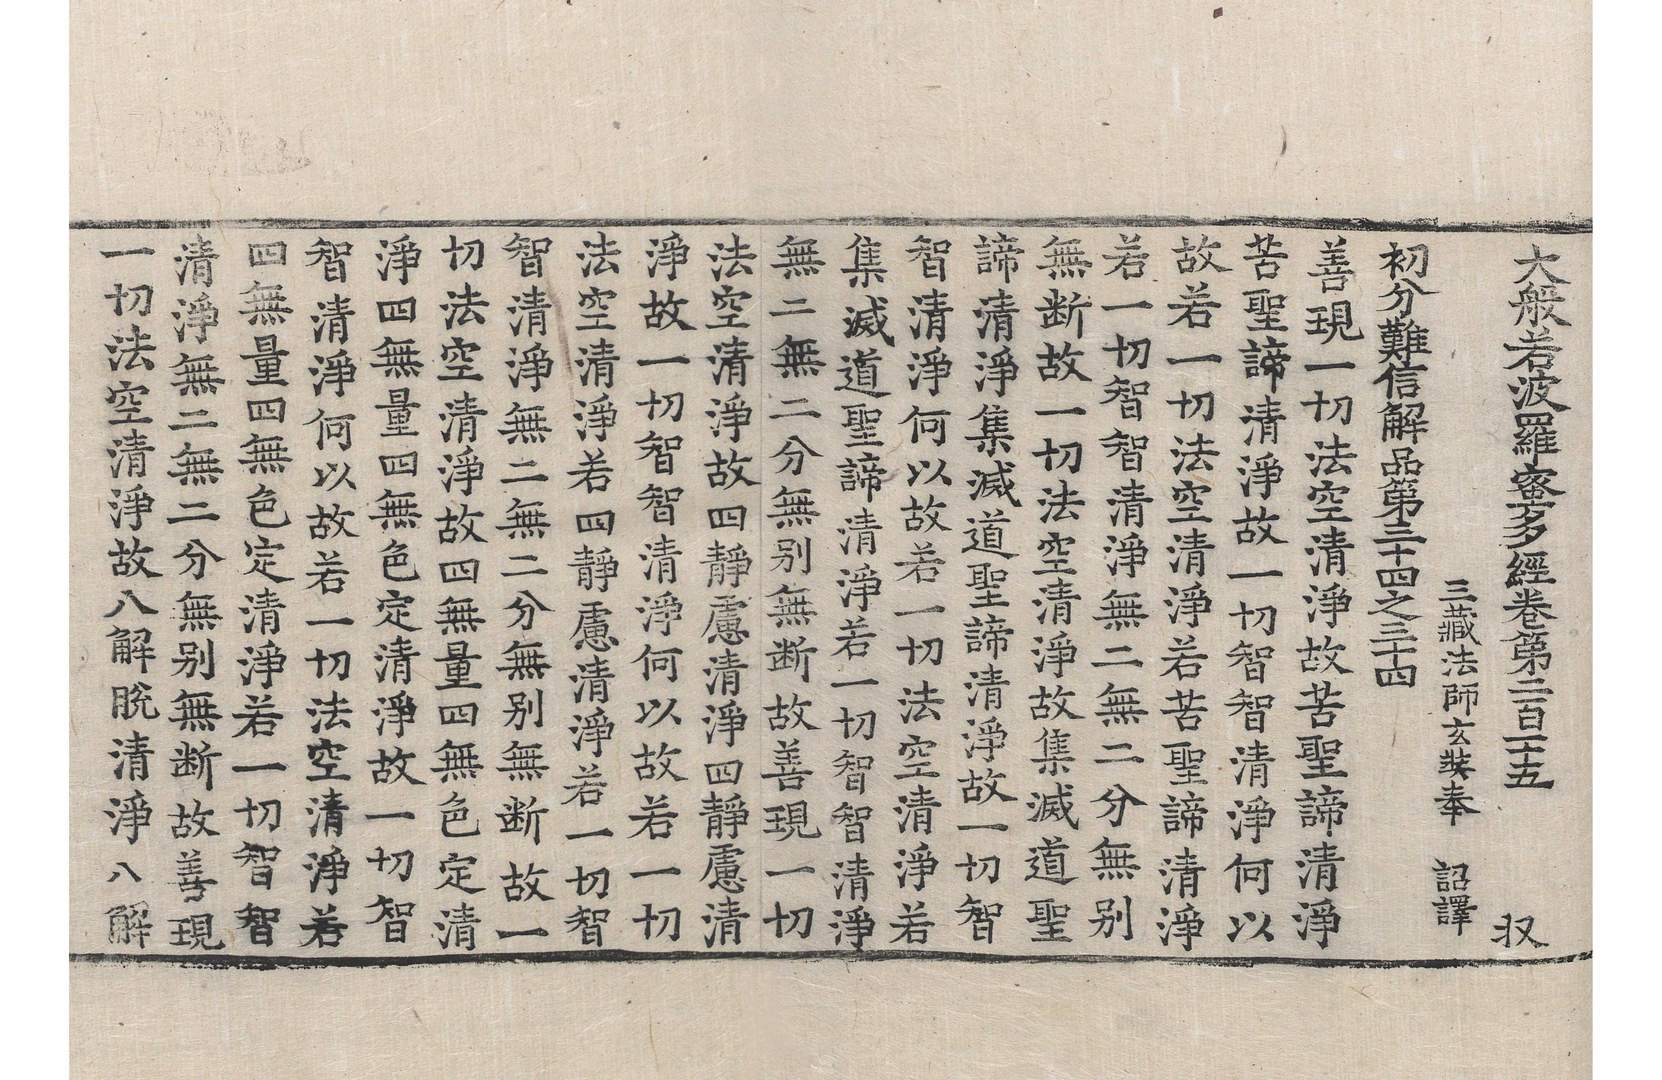 大般若波羅蜜多經卷第二百一十五 収
三藏法師玄奘奉 詔譯
初分難信解品第三十四之三十四
善現一切法空清淨故苦聖諦清淨
苦聖諦清淨故一切智智清淨何以
故若一切法空清淨若苦聖諦清淨
若一切智智清淨無二無二分無别
無断故一切法空清淨故集滅道聖
諦清淨集滅道聖諦清淨故一切智
智清淨何以故若一切法空清淨若
集滅道聖諦清淨若一切智智清淨
無二無二分無别無断故善現一切
法空清淨故四靜慮清淨四靜慮清
淨故一切智智清淨何以故若一切
法空清淨若四靜慮清淨若一切智
智清淨無二無二分無别無断故一
切法空清淨故四無量四無色定清
淨四無量四無色定清淨故一切智
智清淨何以故若一切法空清淨若
四無量四無色定清淨若一切智智
清淨無二無二分無别無断故善現
一切法空清淨故八解脫清淨八解